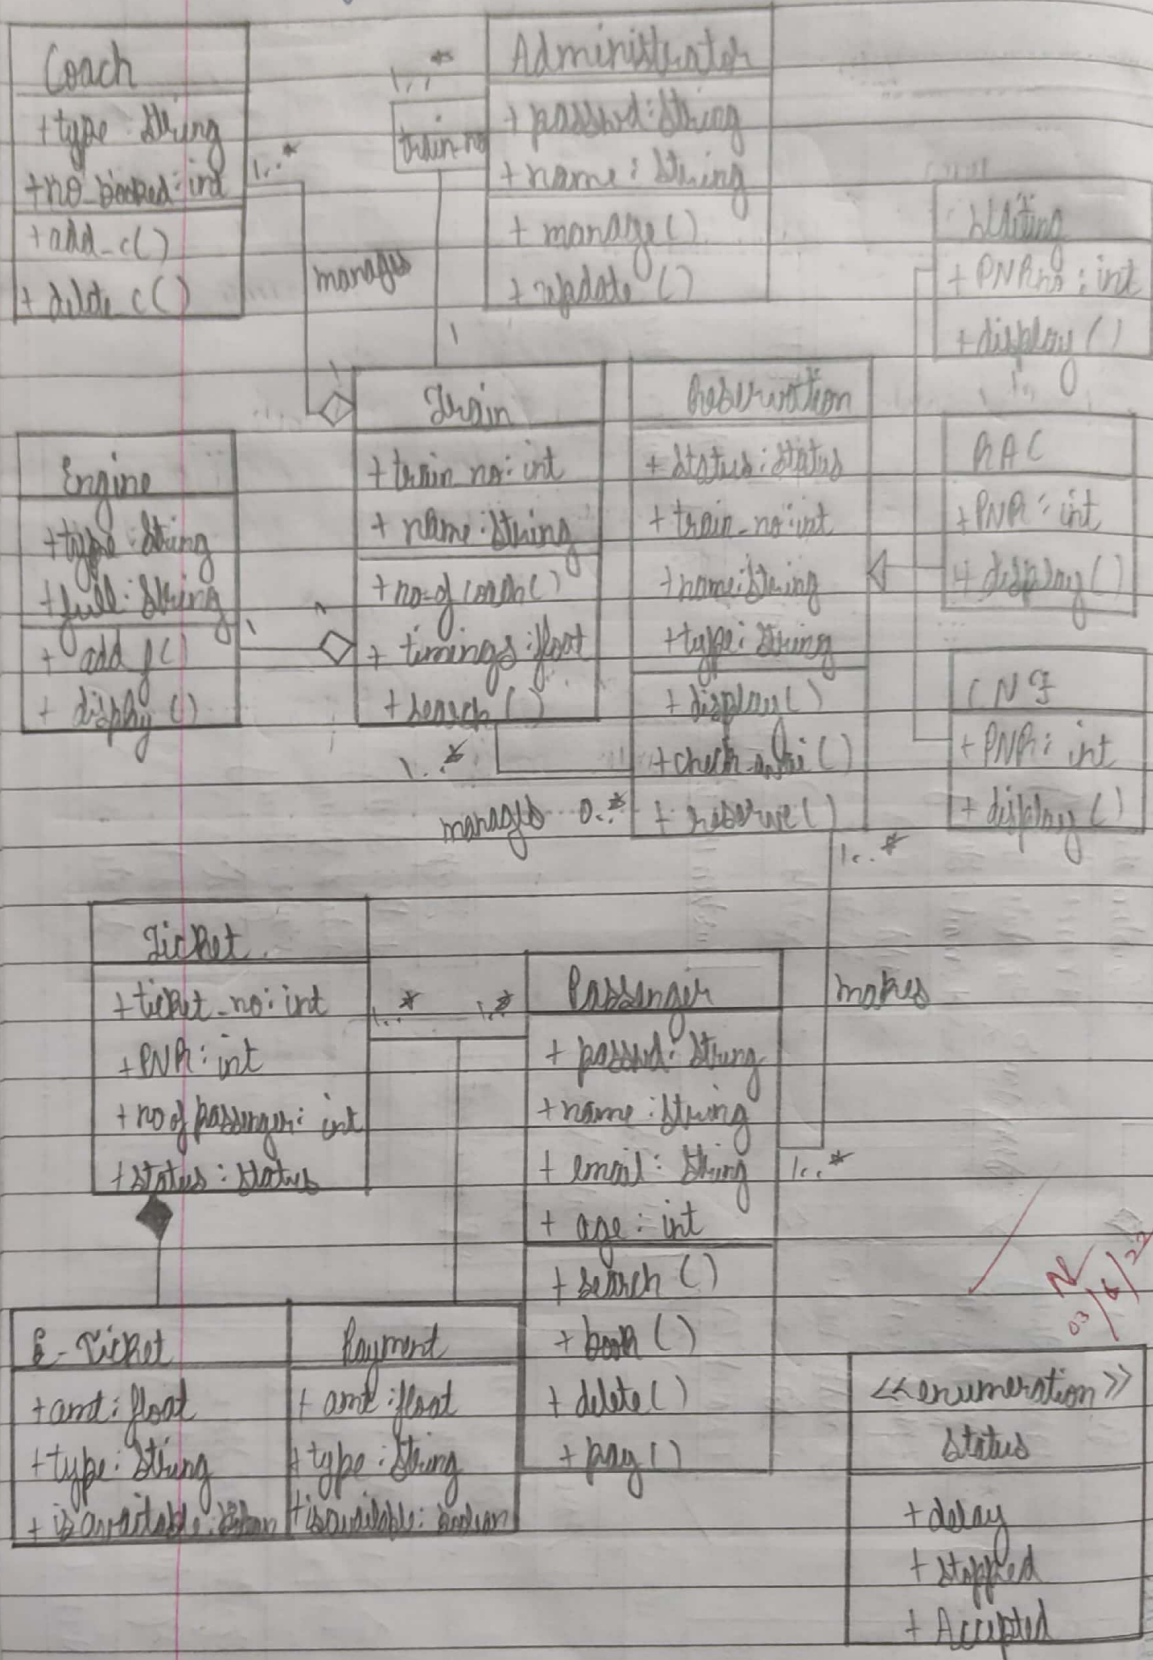 Coach
+type : String
+no_booked : int
+add_c()
+ delete c()
1..*
1..*
train-no
Administrator
+ passwd : String
+ name : String
+ manage()
+ update ()
manages
1
1
Waiting
+ PNRno : int
+ display ()
Train
+ train no : int
+ name : String
+ no-of coach()
+ timings : float
+ search ()
Reservation
+ Status : Status
+ train_no : int
+name : String
+type : String
+ display()
+ check_avai ()
+ reserve()
RAC
+ PNR : int
+ display()
Engine
+type : String
+ full : String
+ add f()
+ display ()
1
CNF
+ PNR : int
+ display()
1..*
manages 0..*
1..*
makes
1..*
Ticket
+ ticket_no : int
+ PNR : int
+ no of passenger : int
+ status : status
1..* 1..*
Passenger
+ passwd : String
+ name : String
+ email : String
+ age : int
+ search ()
+ book ()
+ delete()
+ pay ()
E-Ticket
+ amt : float
+ type : String
+ is available :
Payment
+ amt : float
+ type : String
+ is available : boolean
03/6/22
<<enumeration>>
Status
+ delay
+ Stopped
+ Accepted